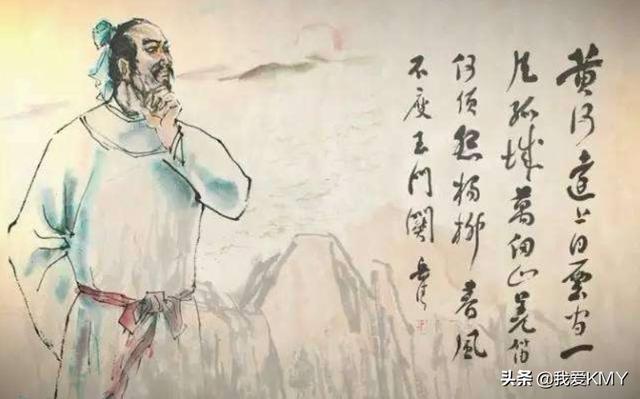 黄河遠上白雲间一
片孤城萬仞山羌笛
何须怨楊柳春風
不度玉門關
头条 @我爱KMY